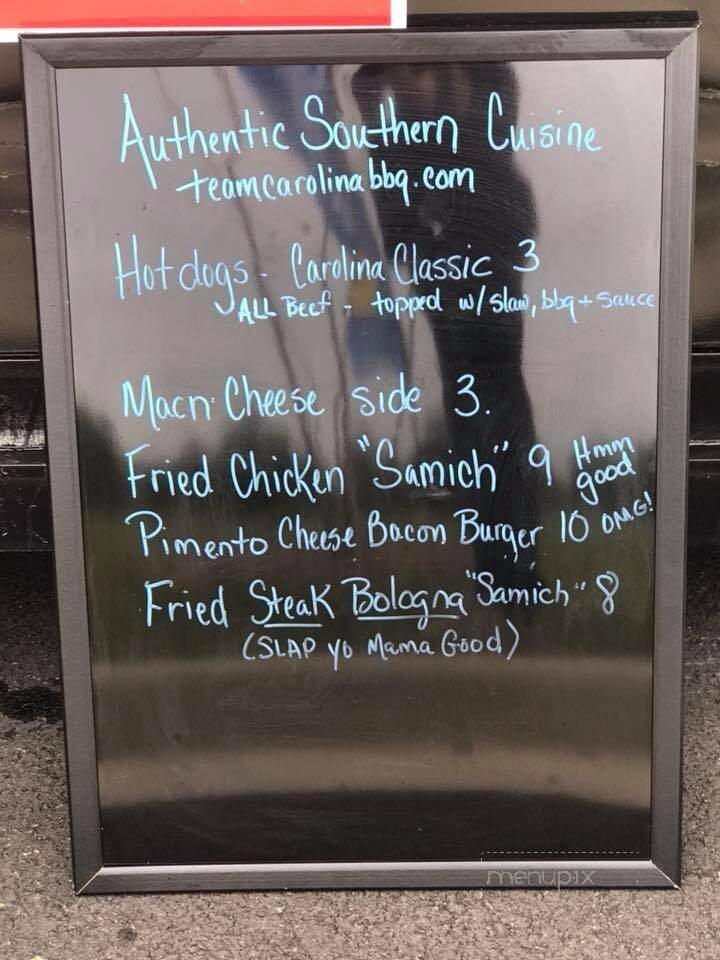 Authentic Southern Cuisine
teamcarolinabbq.com
Hotdogs - Carolina Classic 3
ALL Beef - topped w/ slaw, bbq + sauce
Mac n Cheese side 3.
Fried Chicken "Samich" 9 Hmm good
Pimento Cheese Bacon Burger 10 OMG!
Fried Steak Bologna "Samich" 8
(SLAP yo Mama Good)
menupix